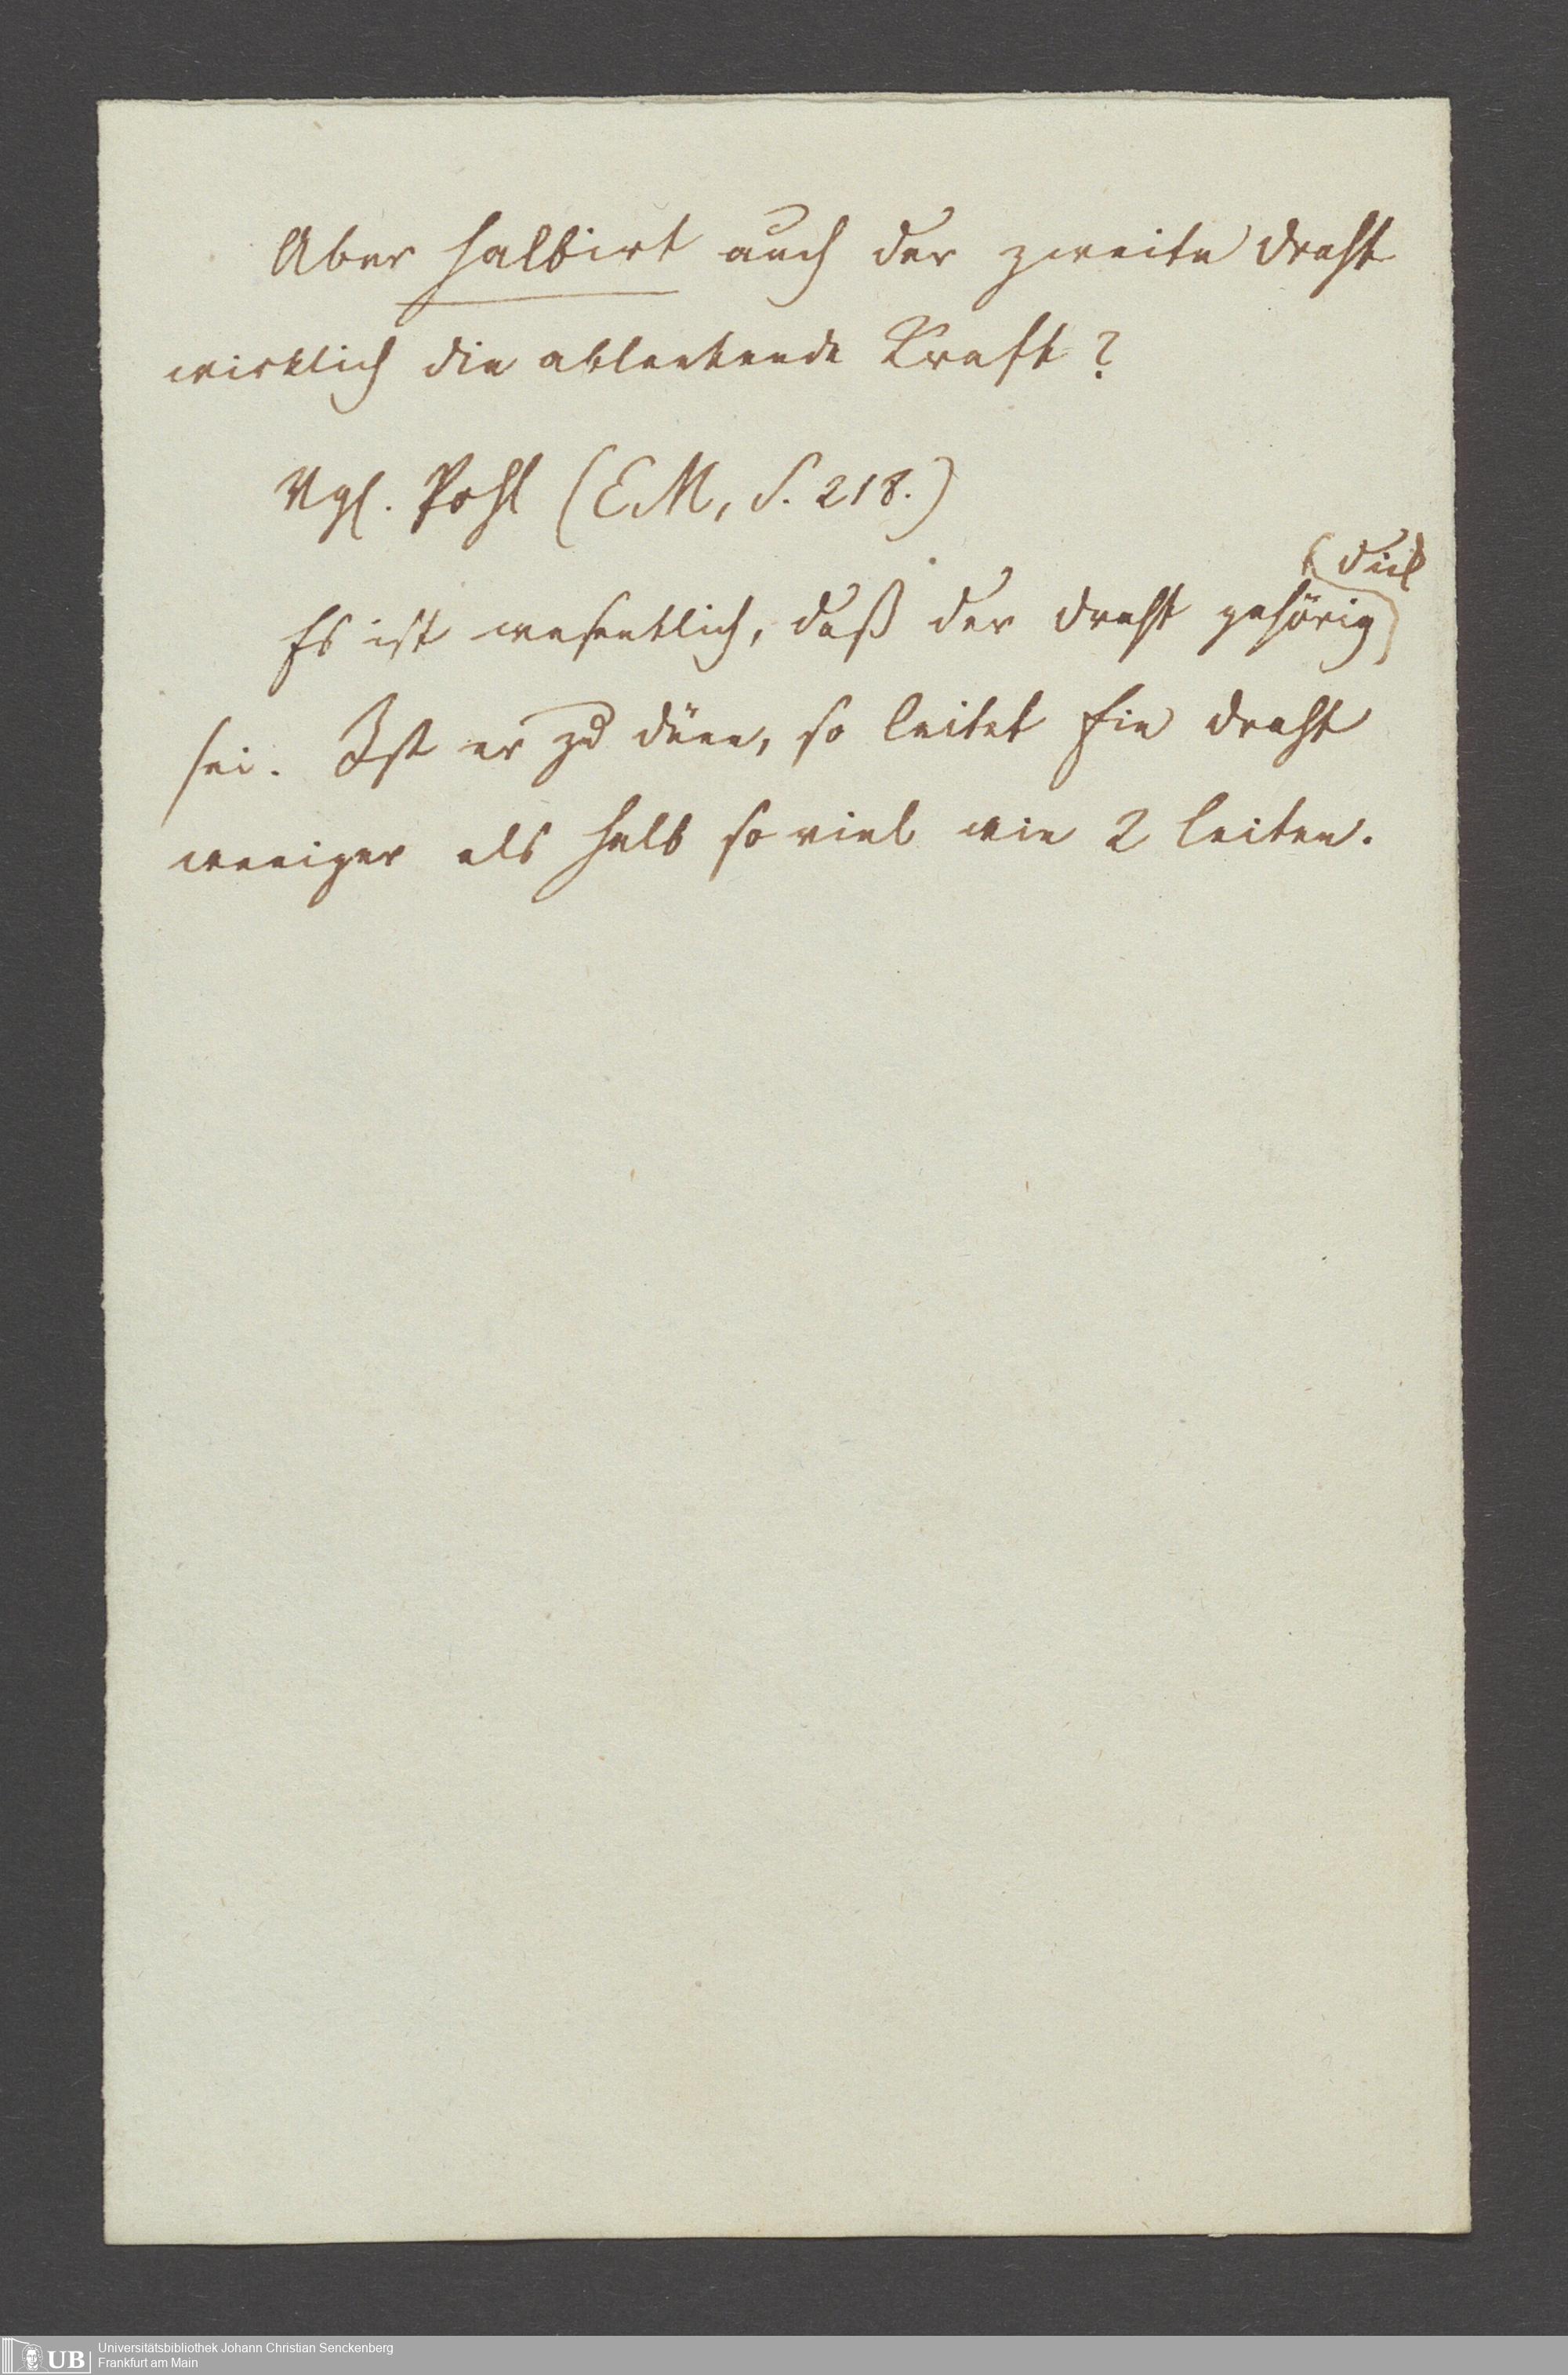 Aber halbirt auch der zweite Draht
wirklich die ablenkende Kraft?
Vgl. Pohl (EM, S. 218.)
Es ist wesentlich, daß der Draht gehörig
dick
sei. Ist er zu dünn, so leitet Ein Draht
weniger als halb so viel wie 2 leiten.
UB
Universitätsbibliothek Johann Christian Senckenberg
Frankfurt am Main